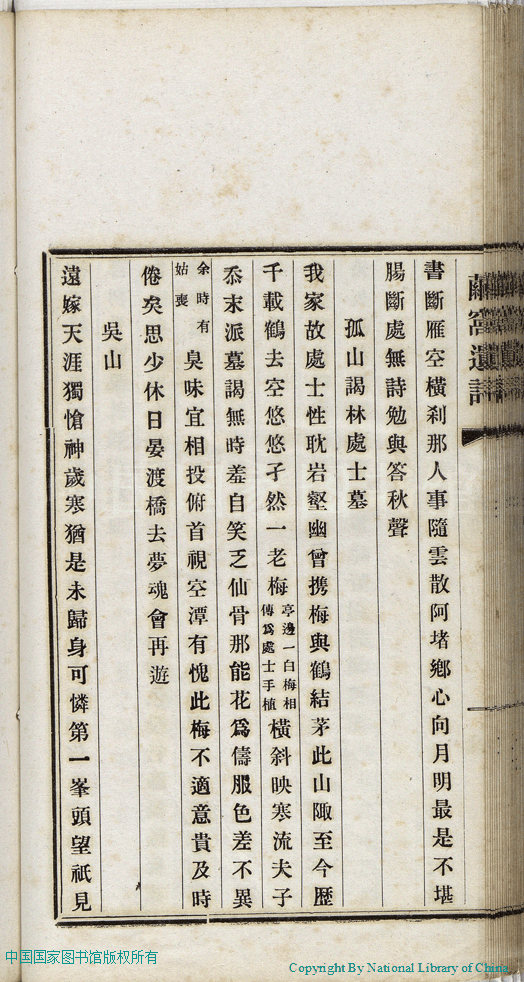 書斷雁空橫刹那人事隨雲散阿堵鄉心向月明最是不堪
腸斷處無詩勉與答秋聲
孤山謁林處士墓
我家故處士性耽岩壑幽曾携梅與鶴結茅此山陬至今歷
千載鶴去空悠悠孑然一老梅亭邊一白梅相傳爲處士手植橫斜映寒流夫子
忝末派墓謁無時羞自笑乏仙骨那能花爲儔服色差不異
余時有姑喪臭味宜相投俯首視空潭有愧此梅不適意貴及時
倦矣思少休日晏渡橋去夢魂會再遊
吳山
遠嫁天涯獨愴神歲寒猶是未歸身可憐第一峯頭望祇見
中国国家图书馆版权所有
Copyright By National Library of China